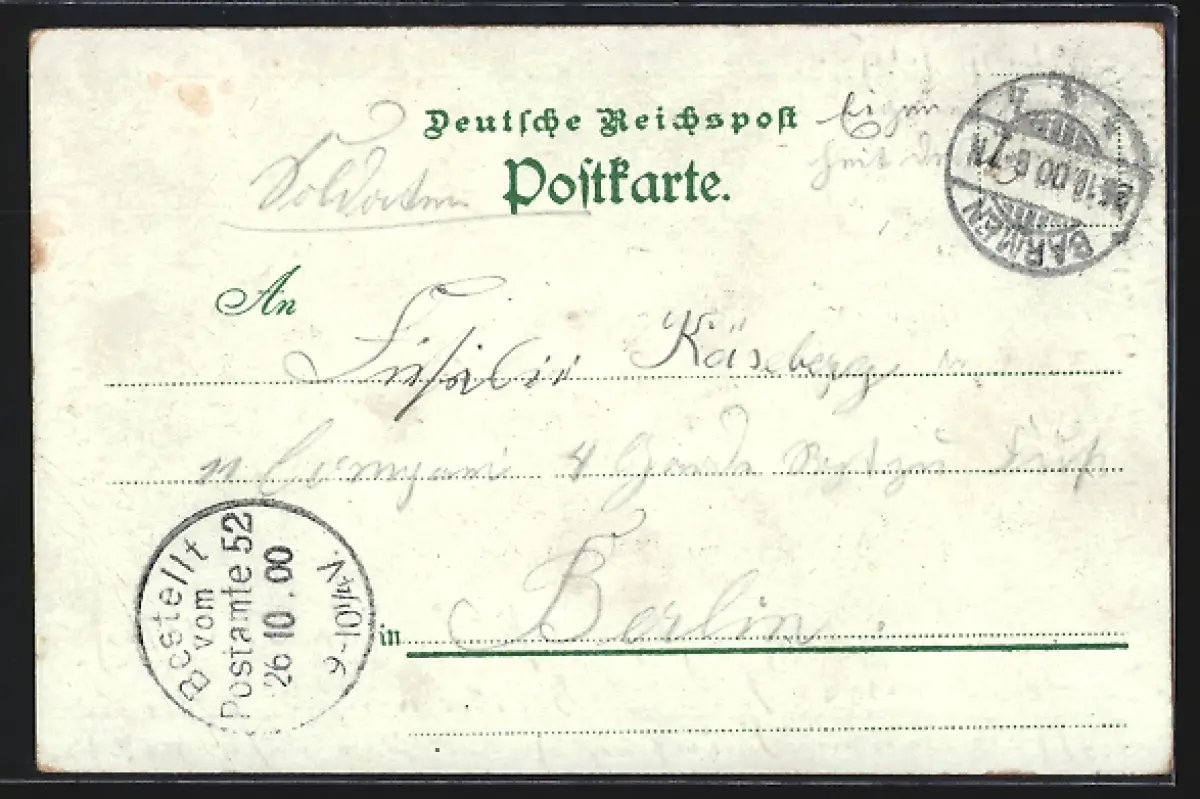 Deutsche Reichspost
Postkarte.
Soldaten
Eigen
heit
BARMEN
10.00.6-7N
An
Füsilier Käseberg
11 Compani 4 Garde Regt zu Fuß
in Berlin.
Bestellt
vom
Postamte 52
26 10.00
9-10 1/4 V.